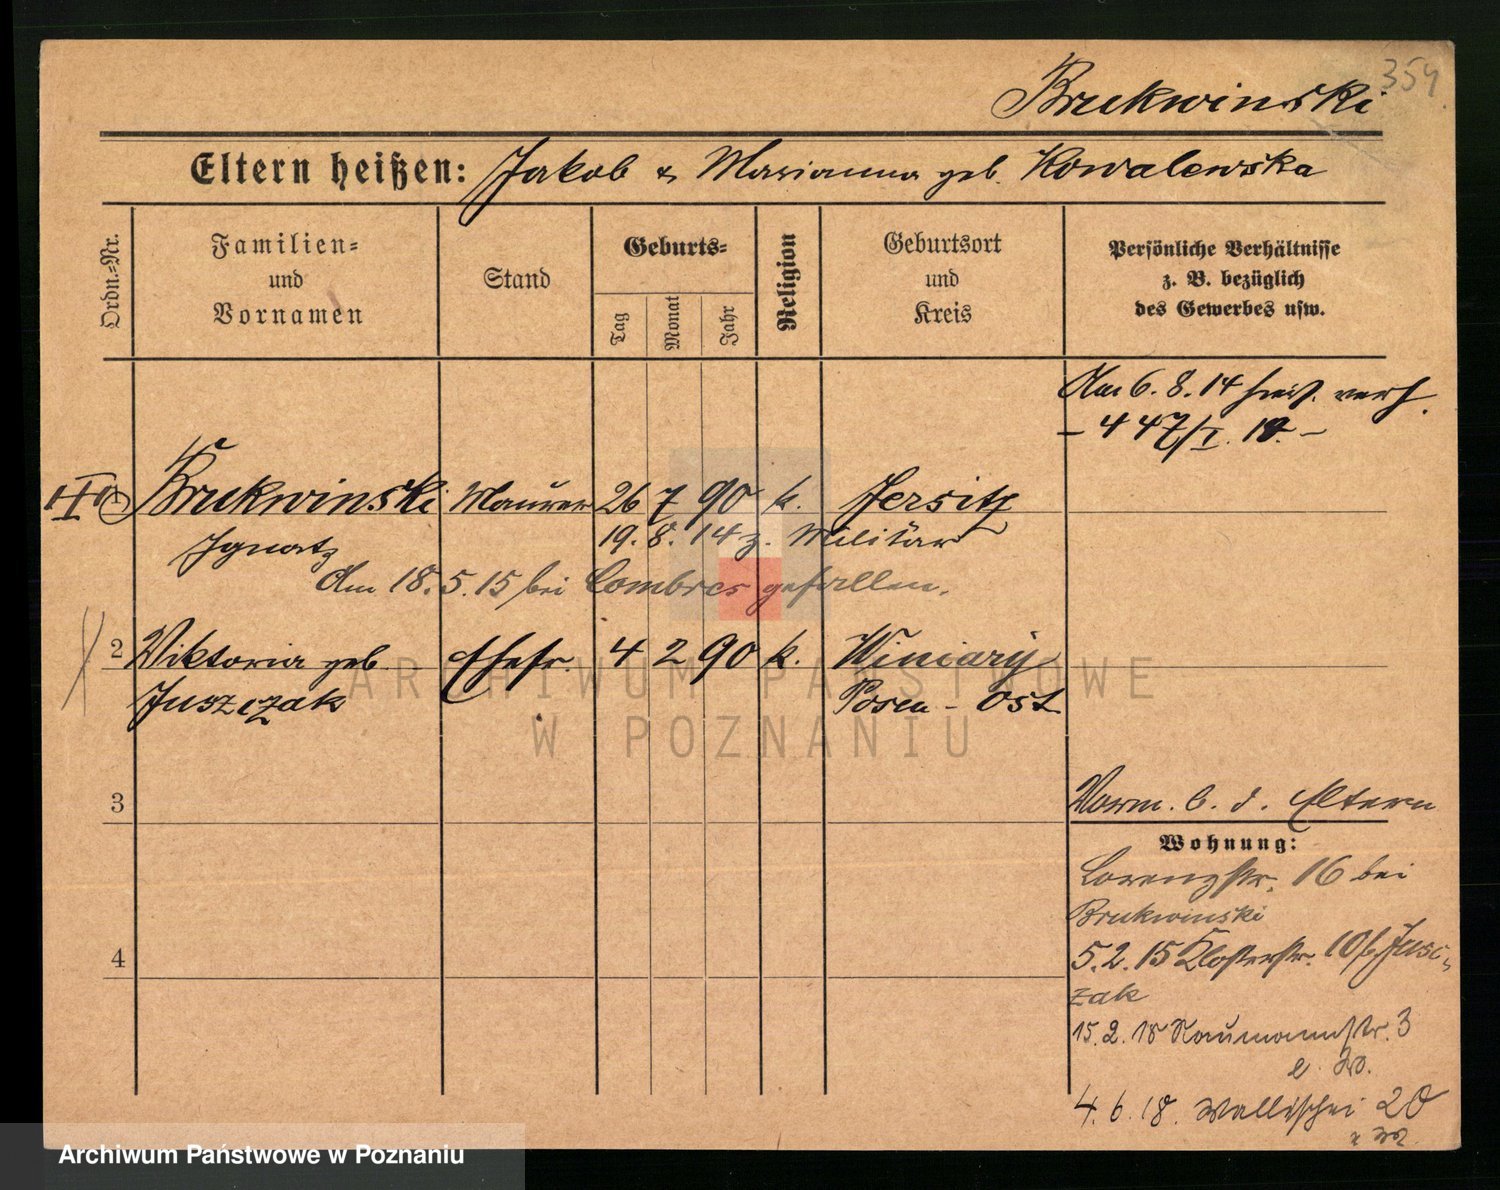 354
Brukwinski
Eltern heißen: Jakob & Marianna geb. Kowalewska
Ordn.=Nr.
Familien=
und
Vornamen
Stand
Geburts=
Tag
Monat
Jahr
Religion
Geburtsort
und
Kreis
Persönliche Verhältnisse
z. B. bezüglich
des Gewerbes usw.
Am 6. 8. 14 verh.
– 447/I. 14. –
Brukwinski Maurer 26 7 90 k. Jersitz
Ignatz 19. 8. 14 z. Militär
Am 18. 5. 15 bei Combres gefallen.
2 Viktoria geb. Ehefr. 4 2 90 k. Winiary
Juszczak Posen - Ost
3
Vorm. b. d. Eltern
Wohnung:
Lorenzstr. 16 bei
Brukwinski
5. 2. 15 Klosterstr. 10 b. Juszc-
zak
4
15. 2. 18 Naumannstr. 3
e. W.
4. 6. 18. Wallischei 20
e. W.
ARCHIWUM PAŃSTWOWE
W POZNANIU
Archiwum Państwowe w Poznaniu